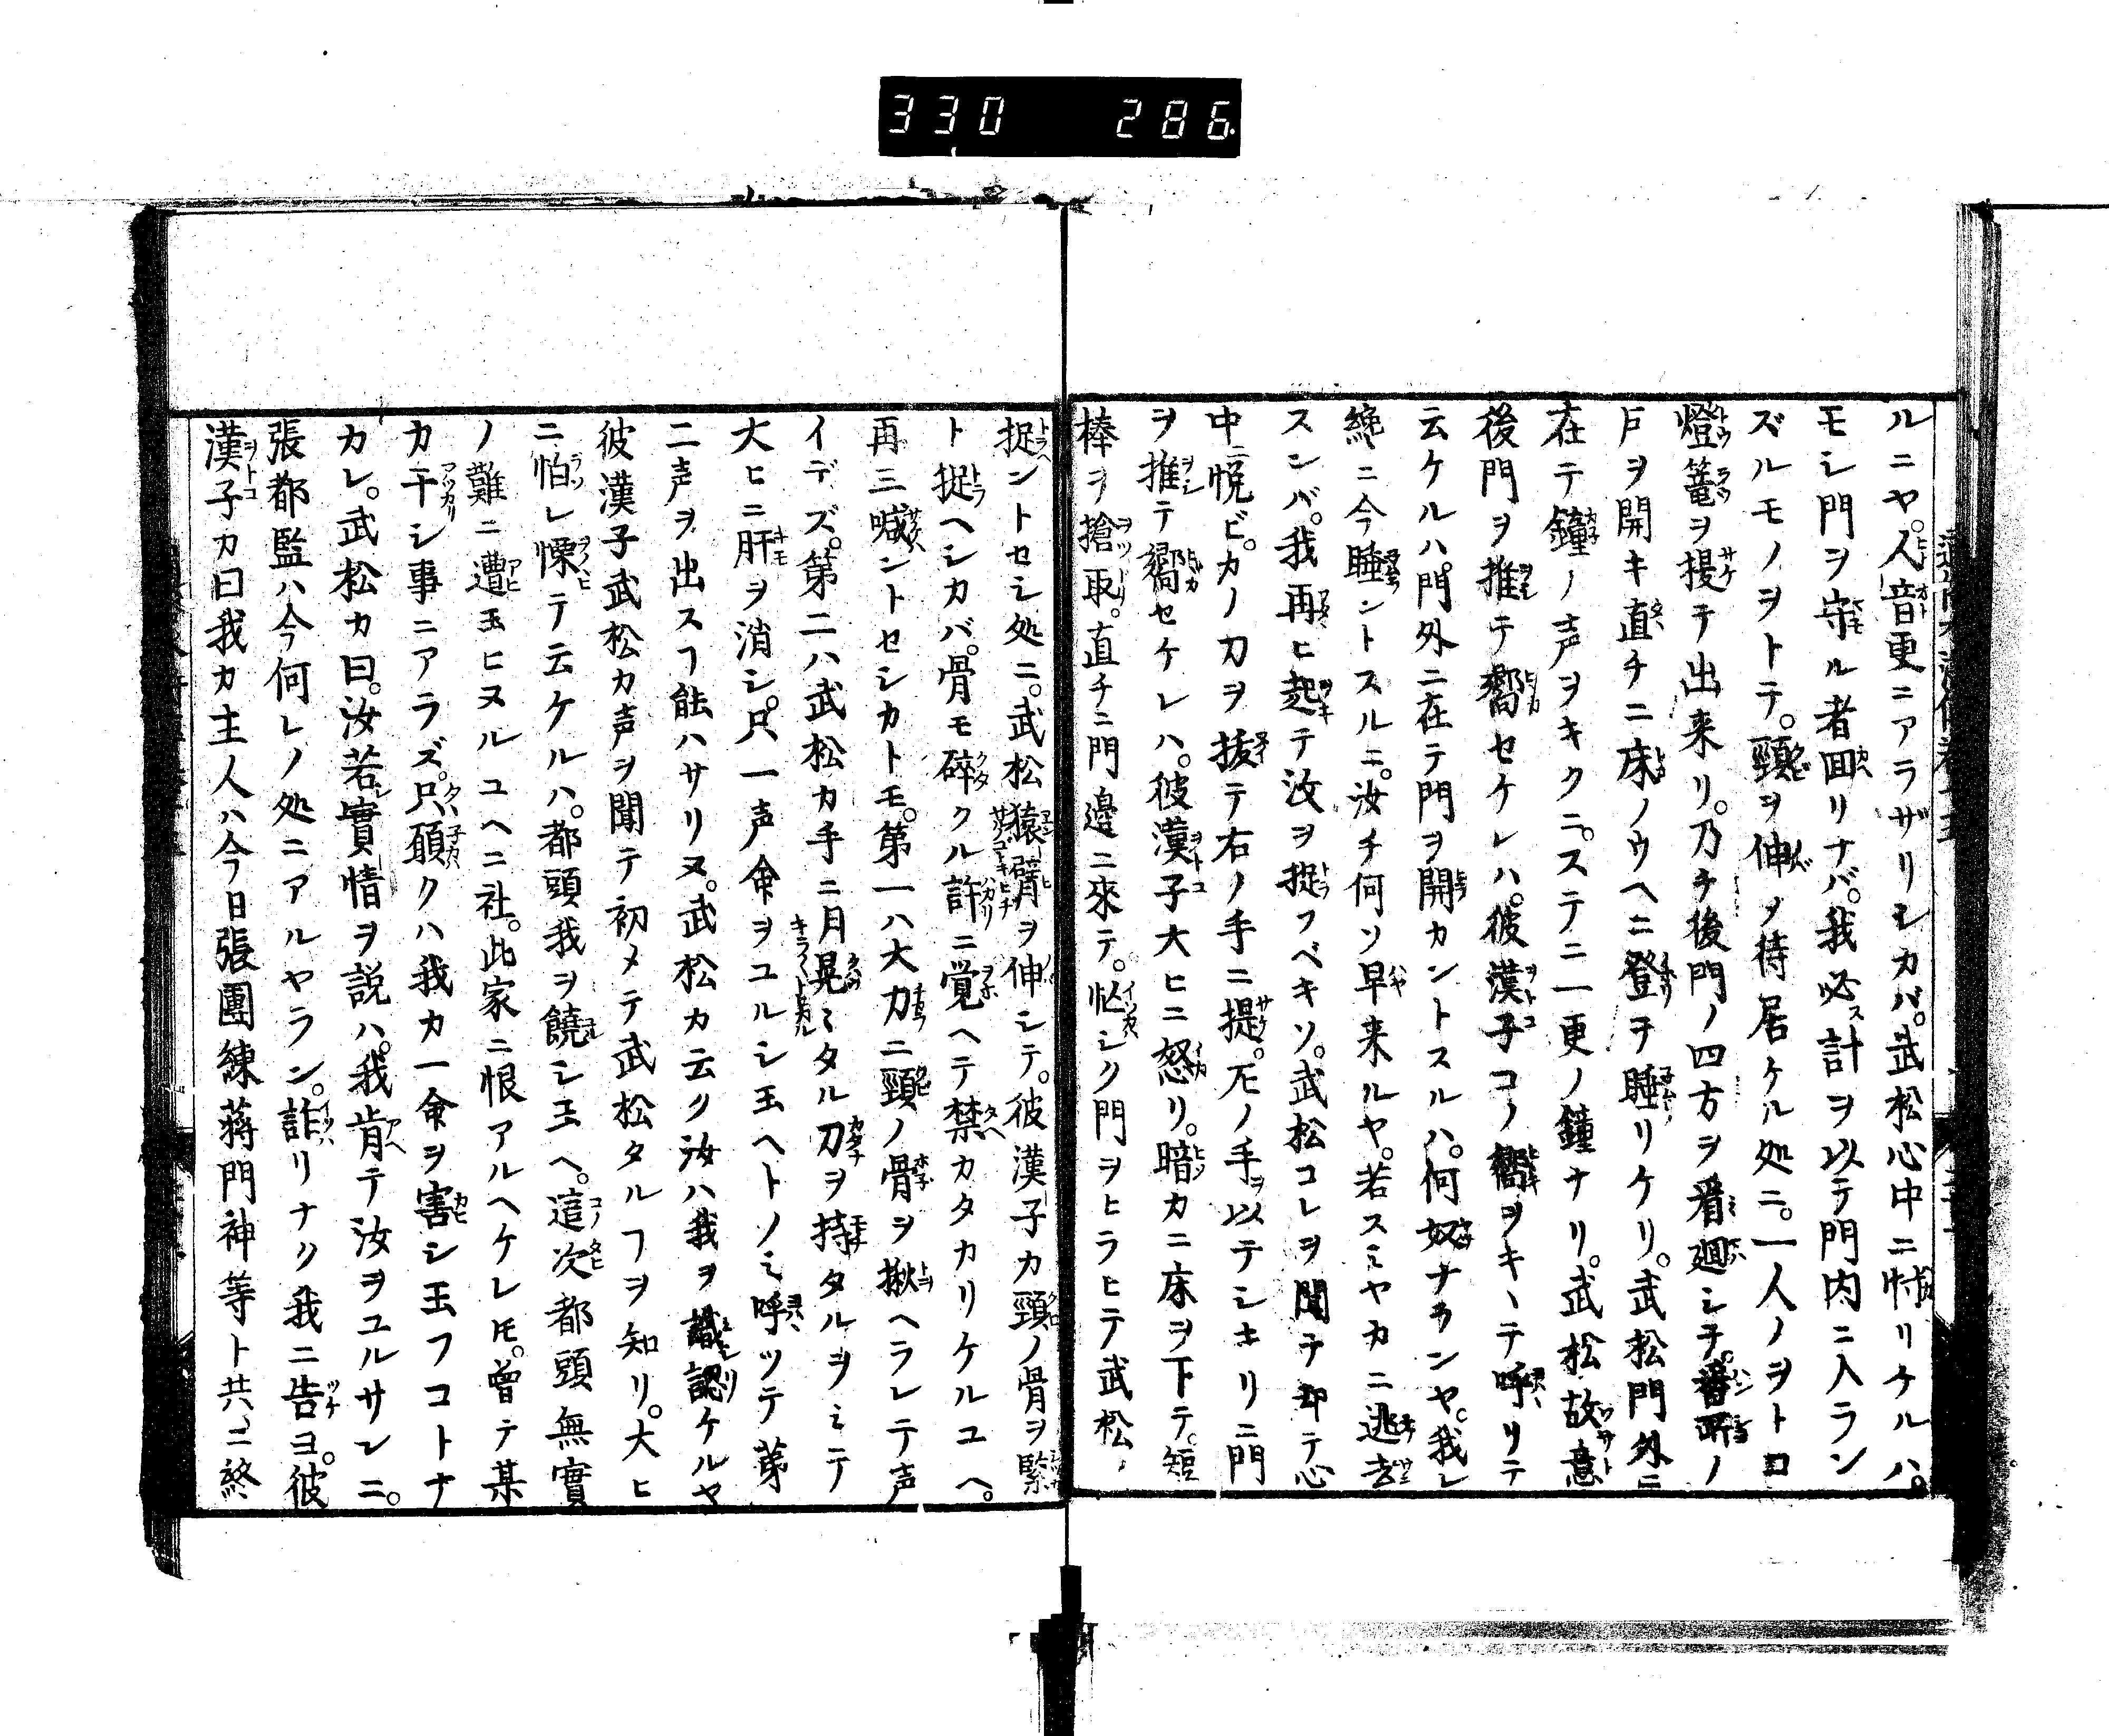 330 286
ルニヤ。人音更ニアラザリシカバ。武松心中ニ忖リケルハ。
モシ門ヲ守ル者回リナバ。我必ス計ヲ以テ門内ニ入ラン
ズルモノヲトテ。頸ヲ伸ノ待居ケル処ニ。一人ノヲトコ
燈篭ヲ提テ出来リ。乃チ後門ノ四方ヲ看廻シテ。番所ノ
戸ヲ開キ直チニ床ノウヘニ登ヲ睡リケリ。武松門外ニ
在テ鐘ノ声ヲキクニ。ステニ一更ノ鐘ナリ。武松故意
後門ヲ推テ響セケレハ。彼漢子コノ響ヲキヽテ呼リテ
云ケルハ。門外ニ在テ門ヲ開カントスルハ。何奴ナランヤ。我レ
纔ニ今睡ントスルニ。汝チ何ソ早来ルヤ。若スミヤカニ逃去
スンバ。我再ヒ起テ汝ヲ捉フベキソ。武松コレヲ聞テ却テ心
中ニ悦ビ。カノ刀ヲ抜テ右ノ手ニ提。左ノ手ヲ以テシキリニ門
ヲ推テ響セケレハ。彼漢子大ヒニ怒リ。暗カニ床ヲ下テ。短
棒ヲ搶取。直チニ門邊ニ來テ。忙シク門ヲヒラヒテ武松ヽ
捉ントセシ処ニ。武松猿臂ヲ伸シテ。彼漢子カ頸ノ骨ヲ緊
ト捉ヘシカバ。骨モ碎クル許ニ覚ヘテ禁カタカリケルユヘ。
再三喊ントセシカトモ。第一ハ大力ニ頸ノ骨ヲ揪ヘラレテ声
イデズ。第二ハ武松カ手ニ月晃ミタル刀ヲ持タルヲミテ
大ヒニ肝ヲ消シ。只一声命ヲユルシ玉ヘトノミ呼ツテ第
二声ヲ出スフ能ハサリヌ。武松カ云ク汝ハ我ヲ識認ケルヤ
彼漢子武松カ声ヲ聞テ初メテ武松タルフヲ知リ。大ヒ
ニ怕レ慄テ云ケルハ。都頭我ヲ饒シ玉ヘ。這次都頭無實
ノ難ニ遭玉ヒヌルユヘニ社。此家ニ恨アルヘケレ𪜈。曾テ某
カ干シ事ニアラズ。只願クハ我カ一命ヲ害シ玉フコトナ
カレ。武松カ曰。汝若實情ヲ説ハ。我肯テ汝ヲユルサンニ。
張都監ハ今何レノ処ニアルヤラン。詐リナク我ニ告ヨ。彼
漢子カ曰我カ主人ハ今日張團練蒋門神等ト共ニ終